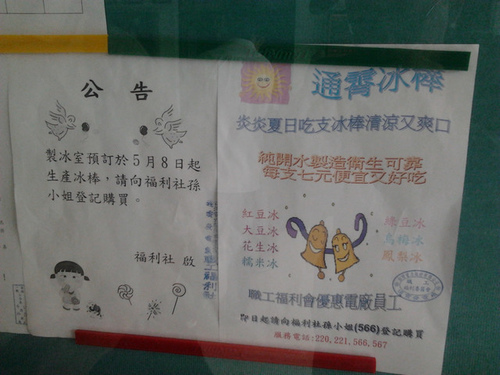 公告
製冰室預訂於5月8日起
生產冰棒，請向福利社孫
小姐登記購買。
福利社 啟
通霄冰棒
炎炎夏日吃支冰棒清涼又爽口
純開水製造衛生可靠
每支七元便宜又好吃
紅豆冰
大豆冰
花生冰
糯米冰
綠豆冰
烏梅冰
鳳梨冰
職工福利會優惠電廠員工
即日起請向福利社孫小姐(566)登記購買
服務電話:220,221,566,567